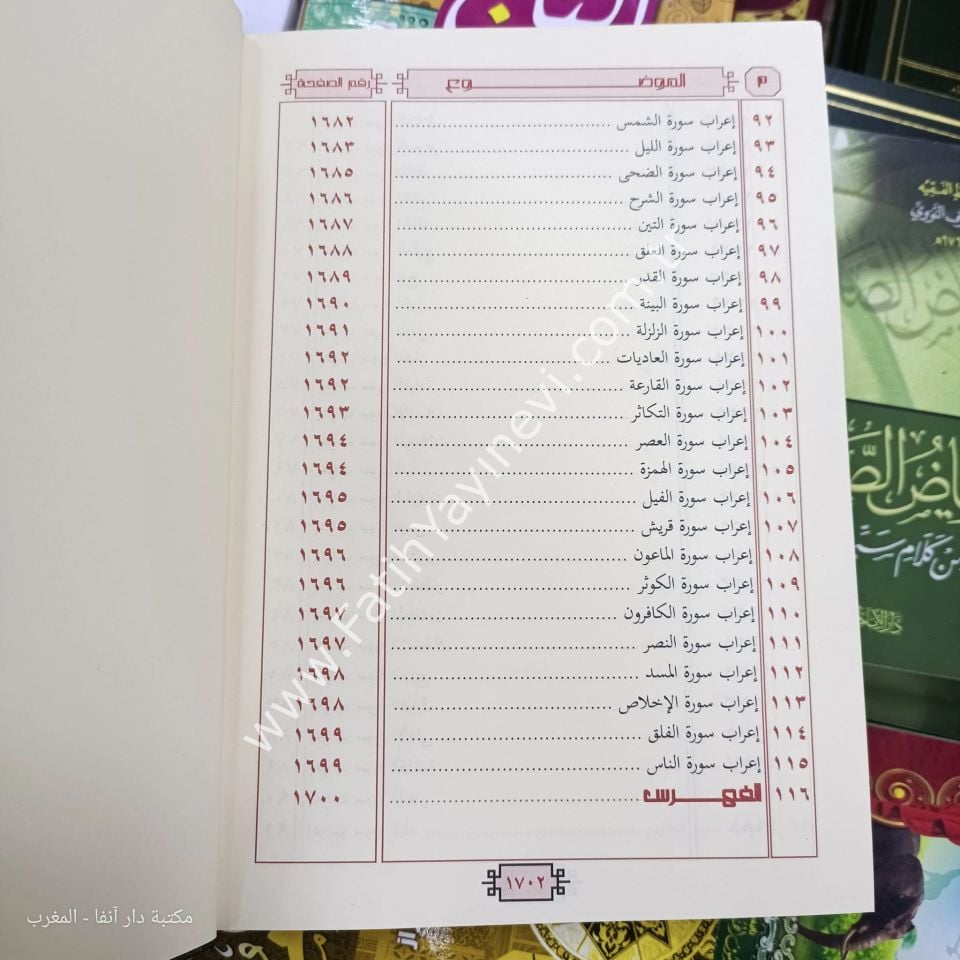 م الموضوع رقم الصفحة
٩٢ إعراب سورة الشمس ١٦٨٢
٩٣ إعراب سورة الليل ١٦٨٣
٩٤ إعراب سورة الضحى ١٦٨٥
٩٥ إعراب سورة الشرح ١٦٨٦
٩٦ إعراب سورة التين ١٦٨٧
٩٧ إعراب سورة العلق ١٦٨٨
٩٨ إعراب سورة القدر ١٦٨٩
٩٩ إعراب سورة البينة ١٦٩٠
١٠٠ إعراب سورة الزلزلة ١٦٩١
١٠١ إعراب سورة العاديات ١٦٩٢
١٠٢ إعراب سورة القارعة ١٦٩٢
١٠٣ إعراب سورة التكاثر ١٦٩٣
١٠٤ إعراب سورة العصر ١٦٩٤
١٠٥ إعراب سورة الهمزة ١٦٩٤
١٠٦ إعراب سورة الفيل ١٦٩٥
١٠٧ إعراب سورة قريش ١٦٩٥
١٠٨ إعراب سورة الماعون ١٦٩٦
١٠٩ إعراب سورة الكوثر ١٦٩٦
١١٠ إعراب سورة الكافرون ١٦٩٧
١١١ إعراب سورة النصر ١٦٩٧
١١٢ إعراب سورة المسد ١٦٩٨
١١٣ إعراب سورة الإخلاص ١٦٩٨
١١٤ إعراب سورة الفلق ١٦٩٩
١١٥ إعراب سورة الناس ١٦٩٩
١١٦ الفهرس ١٧٠٠
١٧٠٢
www.FatihYayinevi.com.tr
مكتبة دار آنفا - المغرب